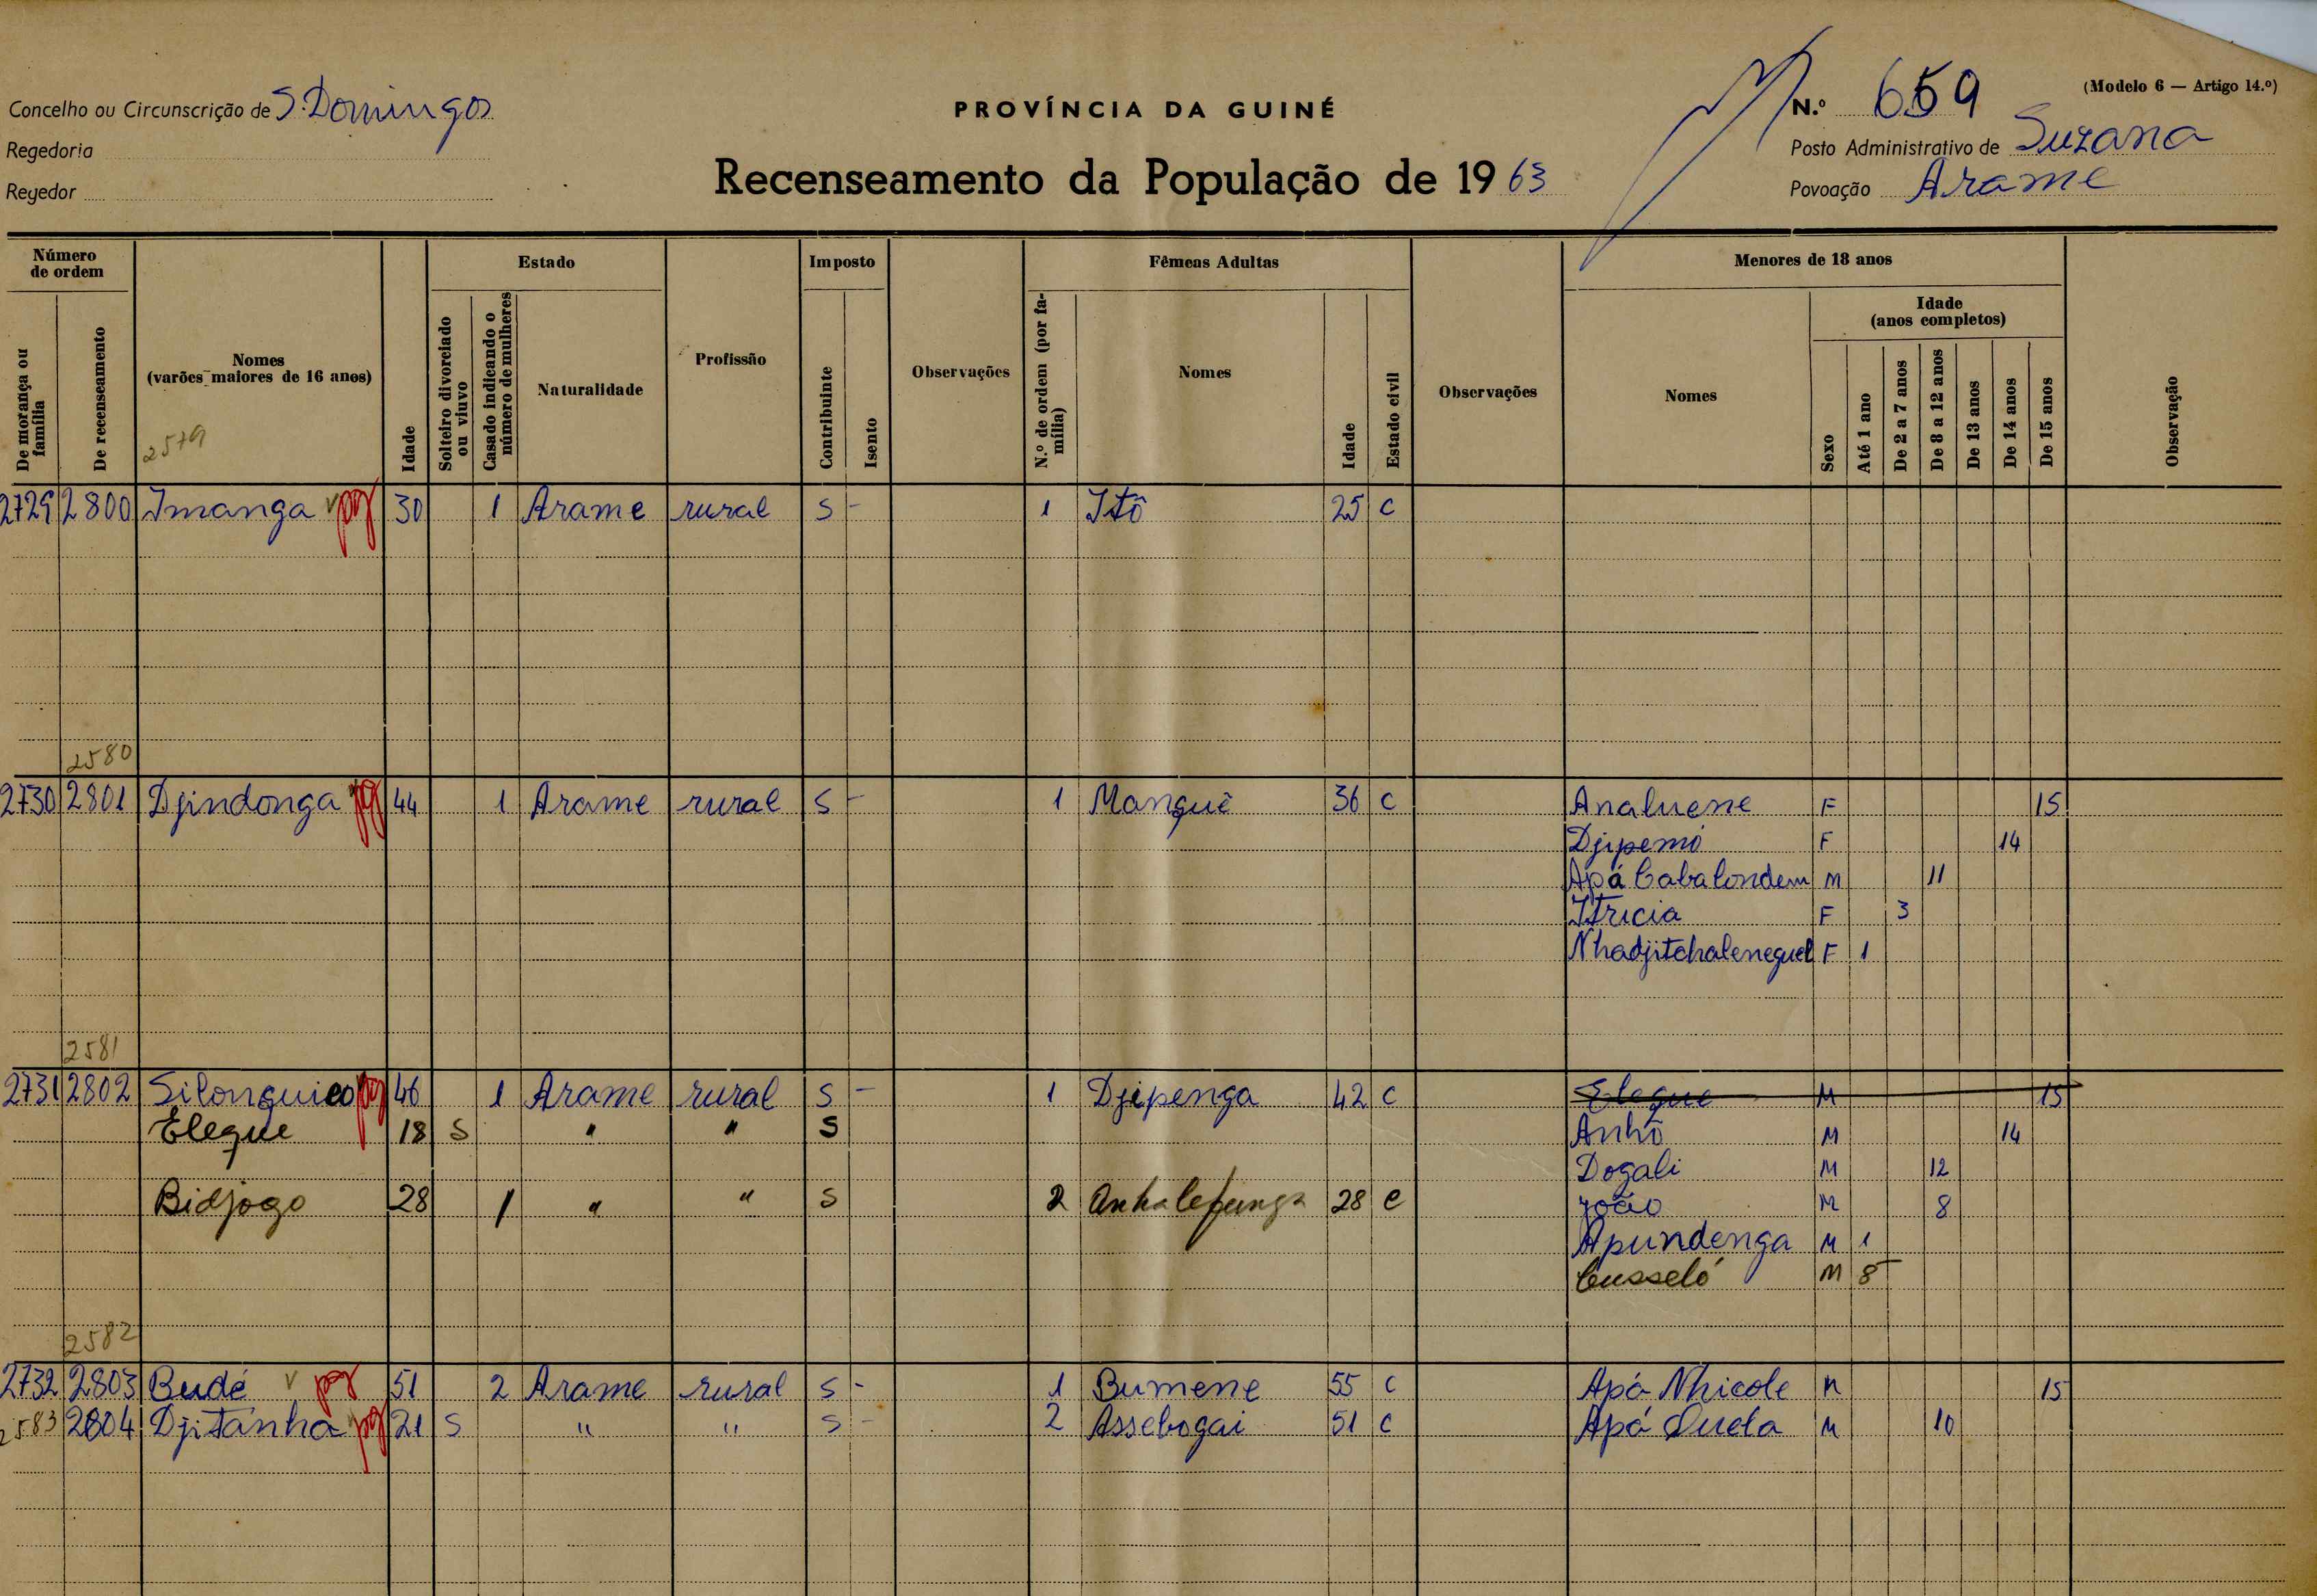 (Modelo 6 — Artigo 14.º)
Concelho ou Circunscrição de S. Domingos
PROVÍNCIA DA GUINÉ
N.º 659
Regedoria
Posto Administrativo de Suzana
Regedor
Recenseamento da População de 1963
Povoação Arame
Número de ordem
Estado
Imposto
Fêmeas Adultas
Menores de 18 anos
De morança ou família
De recenseamento
Nomes (varões maiores de 16 anos)
Idade
Solteiro divorciado ou viuvo
Casado indicando o número de mulheres
Naturalidade
Profissão
Contribuinte
Isento
Observações
N.º de ordem (por família)
Nomes
Idade
Estado civil
Observações
Nomes
Sexo
Idade (anos completos)
Até 1 ano
De 2 a 7 anos
De 8 a 12 anos
De 13 anos
De 14 anos
De 15 anos
Observação
2579
2729 2800 Imanga v pg 30 1 Arame rural S - 1 Itô 25 C
2580
2730 2801 Djindonga pg 44 1 Arame rural S - 1 Manguê 36 C Analuene F 15
Djipemó F 14
Apá Cabalondem M 11
Itricia F 3
Nhadjitchaleneguel F 1
2581
2731 2802 Silonguieo pg 46 1 Arame rural S - 1 Djipenga 42 C Elegue M 15
Elegue 18 S " " S Anhô M 14
Dogali M 12
Bidjogo 28 1 " " S 2 Anhalepunga 28 C João M 8
Apundenga M 1
Cusseló M 8
2582
2732 2803 Budé v pg 51 2 Arame rural S - 1 Bumene 55 C Apá Nhicole M 15
2583 2804 Djitanha pg 21 S " " S - 2 Assebogai 51 C Apá Quela M 10